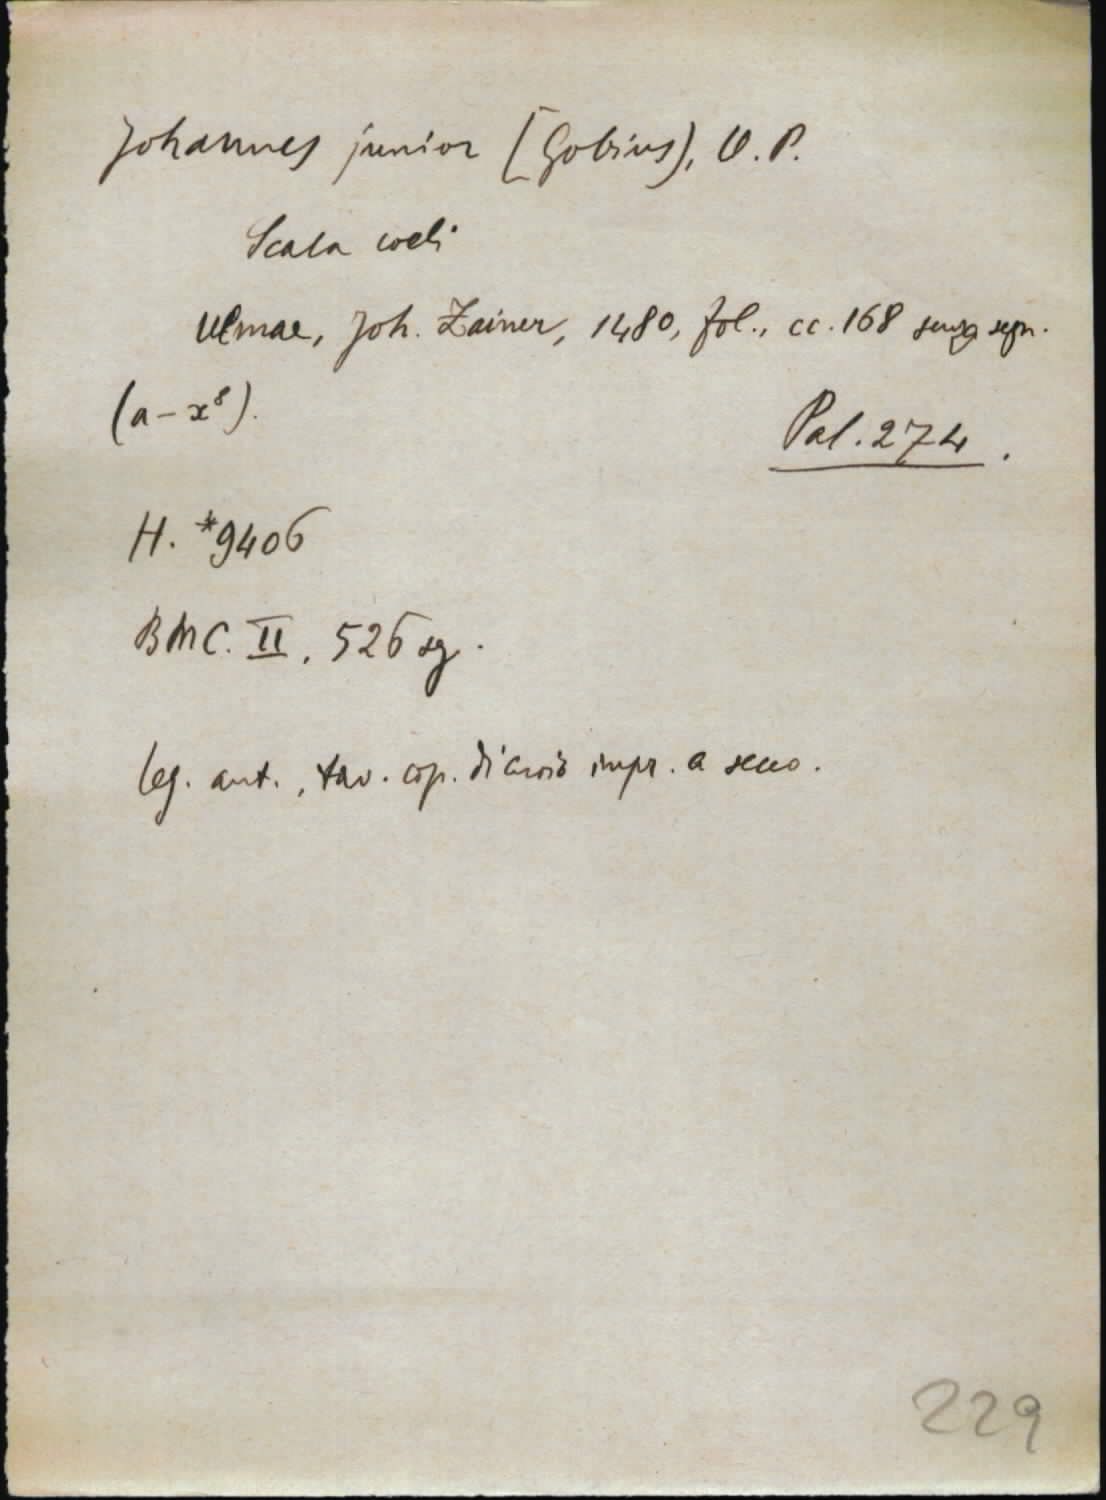 Johannes junior [Gobius), O. P.
Scala coeli
Ulmae, Joh. Zainer, 1480, fol., cc. 168 senza segn.
(a-x⁸).
Pal. 274.
H. *9406
BMC. II, 526 sg.
Leg. ant., tav. cop. di cuoio impr. a secco.
229